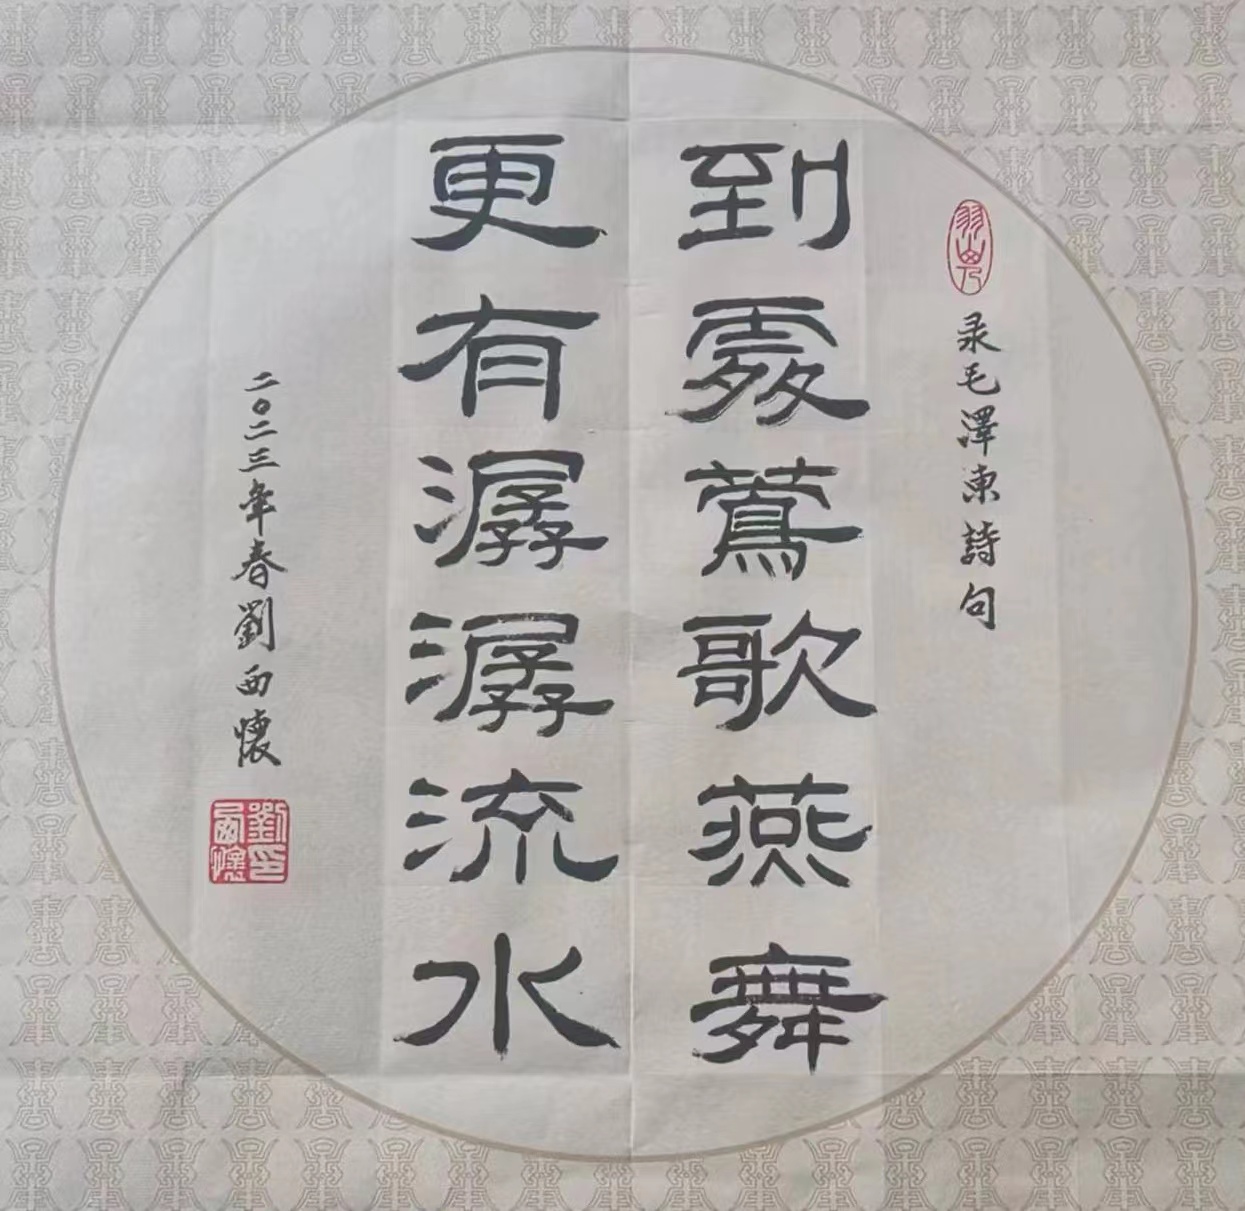 录毛澤東詩句
到處鶯歌燕舞
更有潺潺流水
二〇二三年春劉西懷
劉印西懷